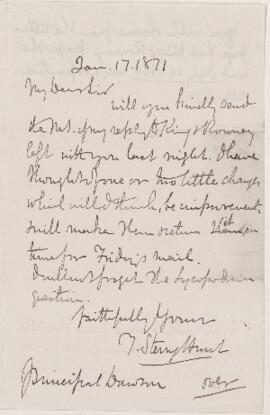 Jan. 17. 1871
My Dear Sir
will you kindly send
the MS. of my reply to King & Rowney
left with you last night. I have
thought of one or two little changes
which will I think, be improvements,
& will make them & return in
time for Friday's mail.
I will not forget the Lycopodium
question.
Faithfully Yours
T. Sterry Hunt
Principal Dawson
over